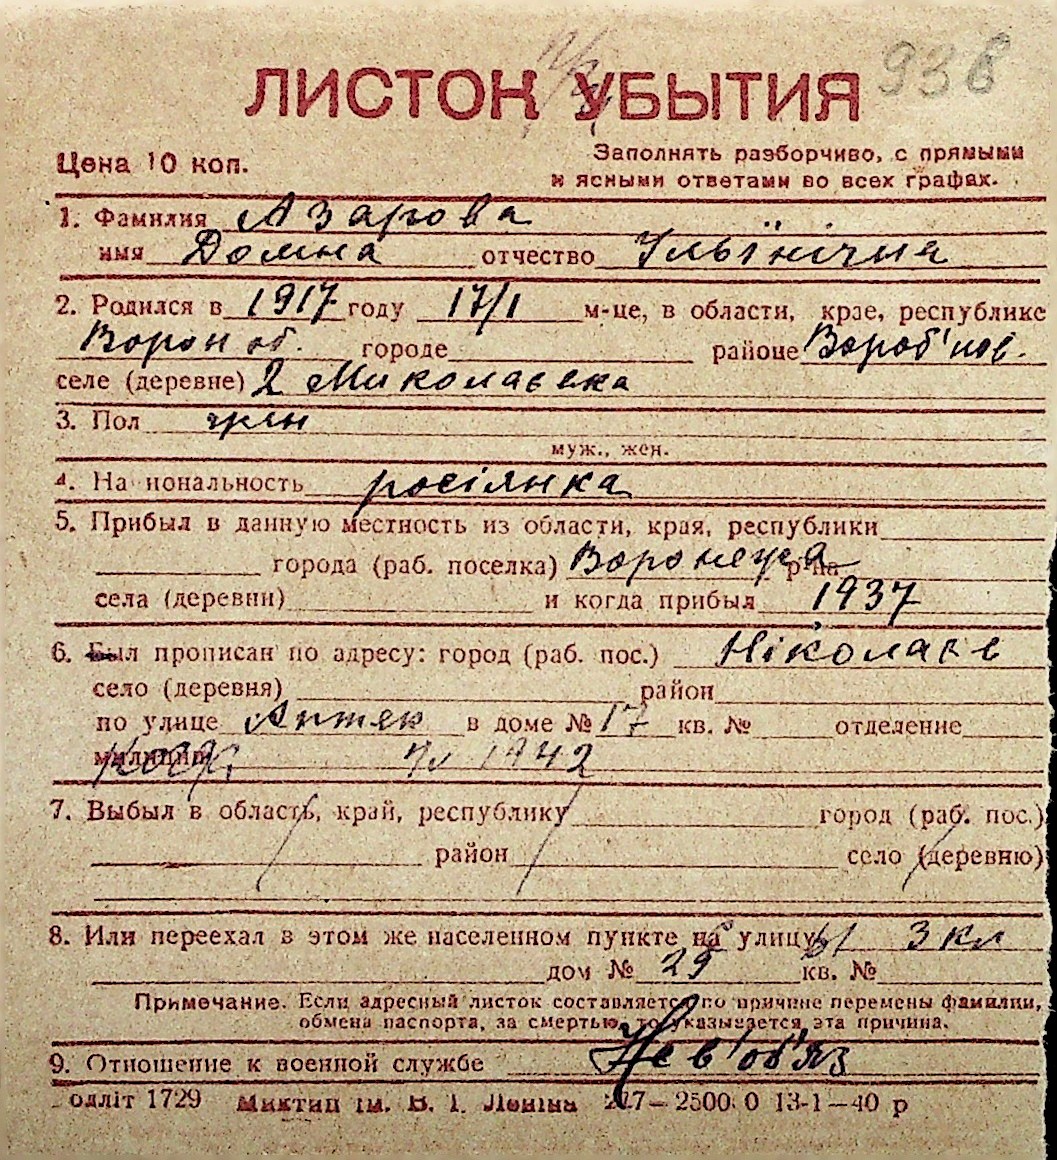 93 в
ЛИСТОК УБЫТИЯ
Цена 10 коп.
Заполнять разборчиво, с прямыми
и ясными ответами во всех графах.
1. Фамилия Азарова
имя Домна отчество Ільїнічна
2. Родился в 1917 году 17/1 м-це, в области, крае, республике
Ворон об. городе районе Вороб'йов.
селе (деревне) 2 Миколаевка
3. Пол жін
муж., жен.
4. На иональность росіянка
5. Прибыл в данную местность из области, края, республики
города (раб. поселка) Воронежа р-на
села (деревни) и когда прибыл 1937
6. Был прописан по адресу: город (раб. пос.) Ніколаев
село (деревня) район
по улице Аптек в доме № 17 кв. № отделение
милиции 1942
7. Выбыл в область, край, республику город (раб. пос.)
район село (деревню)
8. Или переехал в этом же населенном пункте на улицу 3 кл
дом № 29 кв. №
Примечание. Если адресный листок составляется по причине перемены фамилии,
обмена паспорта, за смертью, то указывается эта причина.
9. Отношение к военной службе Нев'об'яз
одліт 1729 Миктип ім. В. І. Леніна 2500 0 13-1—40 р